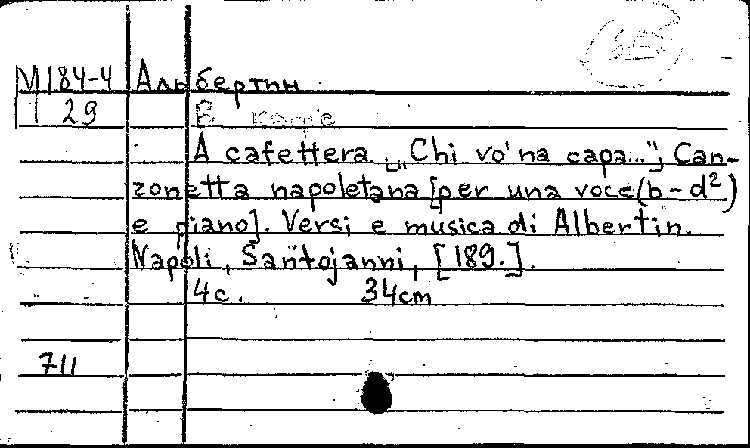 М184-4 Альбертин
29 В кафе
A cafettera „Chi vo' na capa...", Can-
zonetta napoletana [per una voce (b-d²)
e piano]. Versi e musica di Albertin.
Napoli, Santojanni, [189.].
4c. 34cm
711